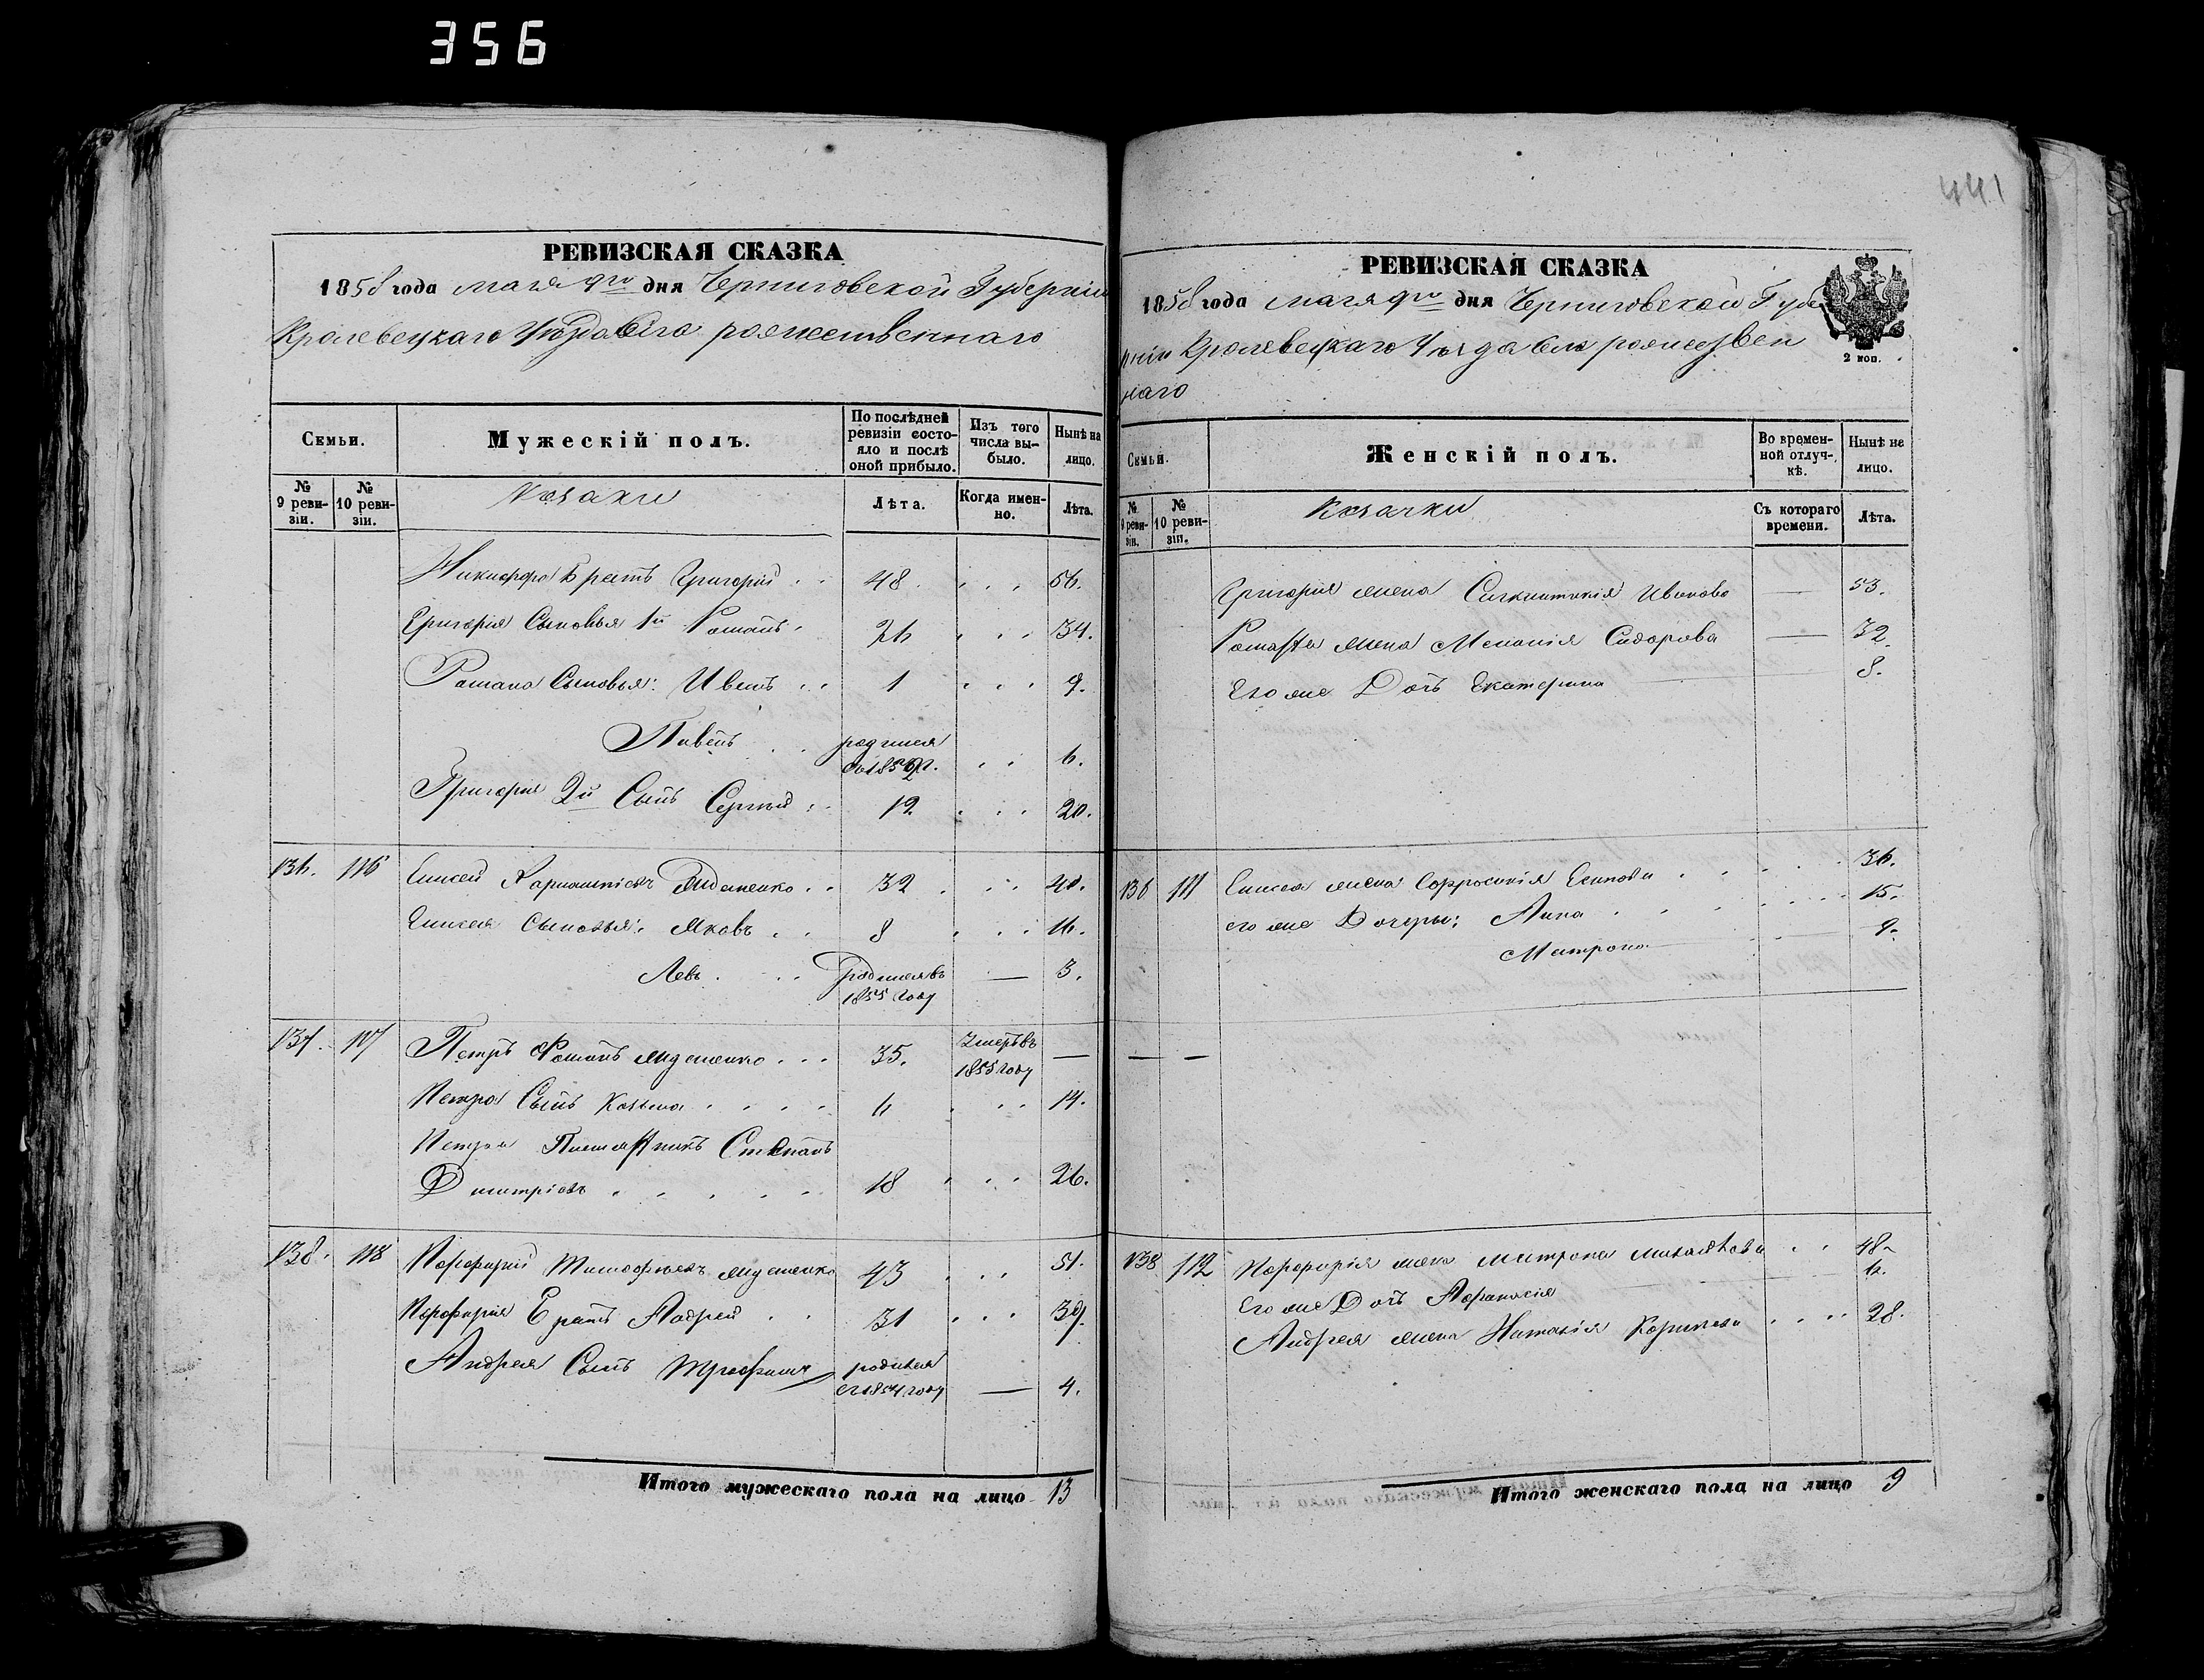 356
441
РЕВИЗСКАЯ СКАЗКА
1858 года мая 9го дня Черниговской Губерніи
Кролевецкаго Уѣзда Села рожественнаго
Семьи.
Мужескій полъ.
По послѣдней ревизіи состояло и послѣ оной прибыло.
Изъ того числа выбыло.
Нынѣ на лицо.
№ 9 ревизіи.
№ 10 ревизіи.
Козаки
Лѣта.
Когда именно.
Лѣта.
Никифора Братъ Григорій 48 56.
Григорія Сыновья 1й Романъ 26 34.
Романа Сыновья: Иванъ 1 9.
Павелъ родился въ 1852 г. 6.
Григорія 2й Сынъ Сергѣй 12 20.
136. 116 Елисей Жидененко 32 40.
Елисея Сыновья: Яковъ 8 16.
Левъ родился въ 1855 году — 3.
137. 117 Петръ 35. Умеръ въ 1855 году —
Петра Сынъ Козьма 6 14.
Петра Племянникъ Степанъ
Дмитріевъ 18 26.
138. 118 Порфирій Тимофѣевъ 43 51.
Порфирія Братъ Андрей 31 39.
Андрея Сынъ Трофимъ родился въ 1854 году — 4.
Итого мужескаго пола на лицо 13
РЕВИЗСКАЯ СКАЗКА
1858 года мая 9го дня Черниговской Губе
рніи Кролевецкаго Уѣзда Села рожествен
наго
2 коп.
Семьи.
Женскій полъ.
Во временной отлучкѣ.
Нынѣ не лицо.
№ 9 ревизіи.
№ 10 ревизіи.
Козачки
Съ котораго времени.
Лѣта.
Григорія жена Иванова — 53.
Романа жена Меланія Сидорова — 32.
Его же Дочь Екатерина 8.
136 111 Елисея жена Есипова 36.
его же Дочери: Анна 15.
Матрона 9.
— —
138 112 Порфирія жена Матрона 48.
Его же Дочь Афанасія 6.
Андрея жена Наталія 28.
Итого женскаго пола на лицо 9